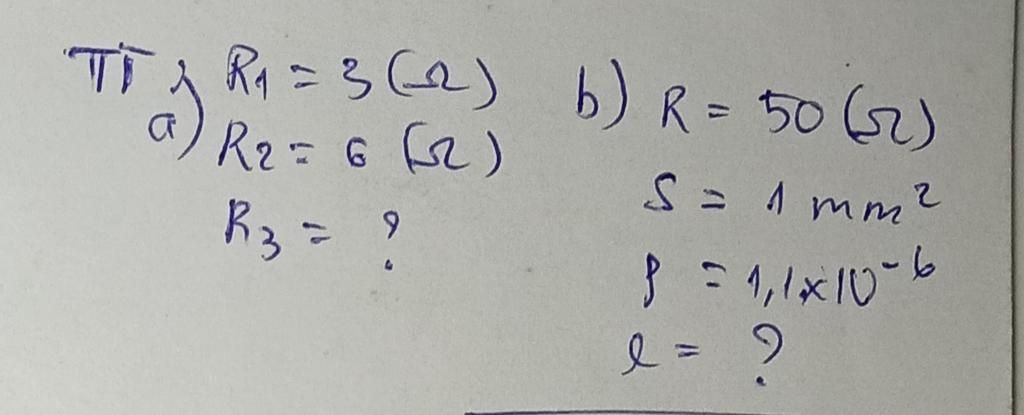 TT;
a) R1 = 3 (Ω)
R2 = 6 (Ω)
R3 = ?
b) R = 50 (Ω)
S = 1 mm²
ρ = 1,1x10⁻⁶
l = ?